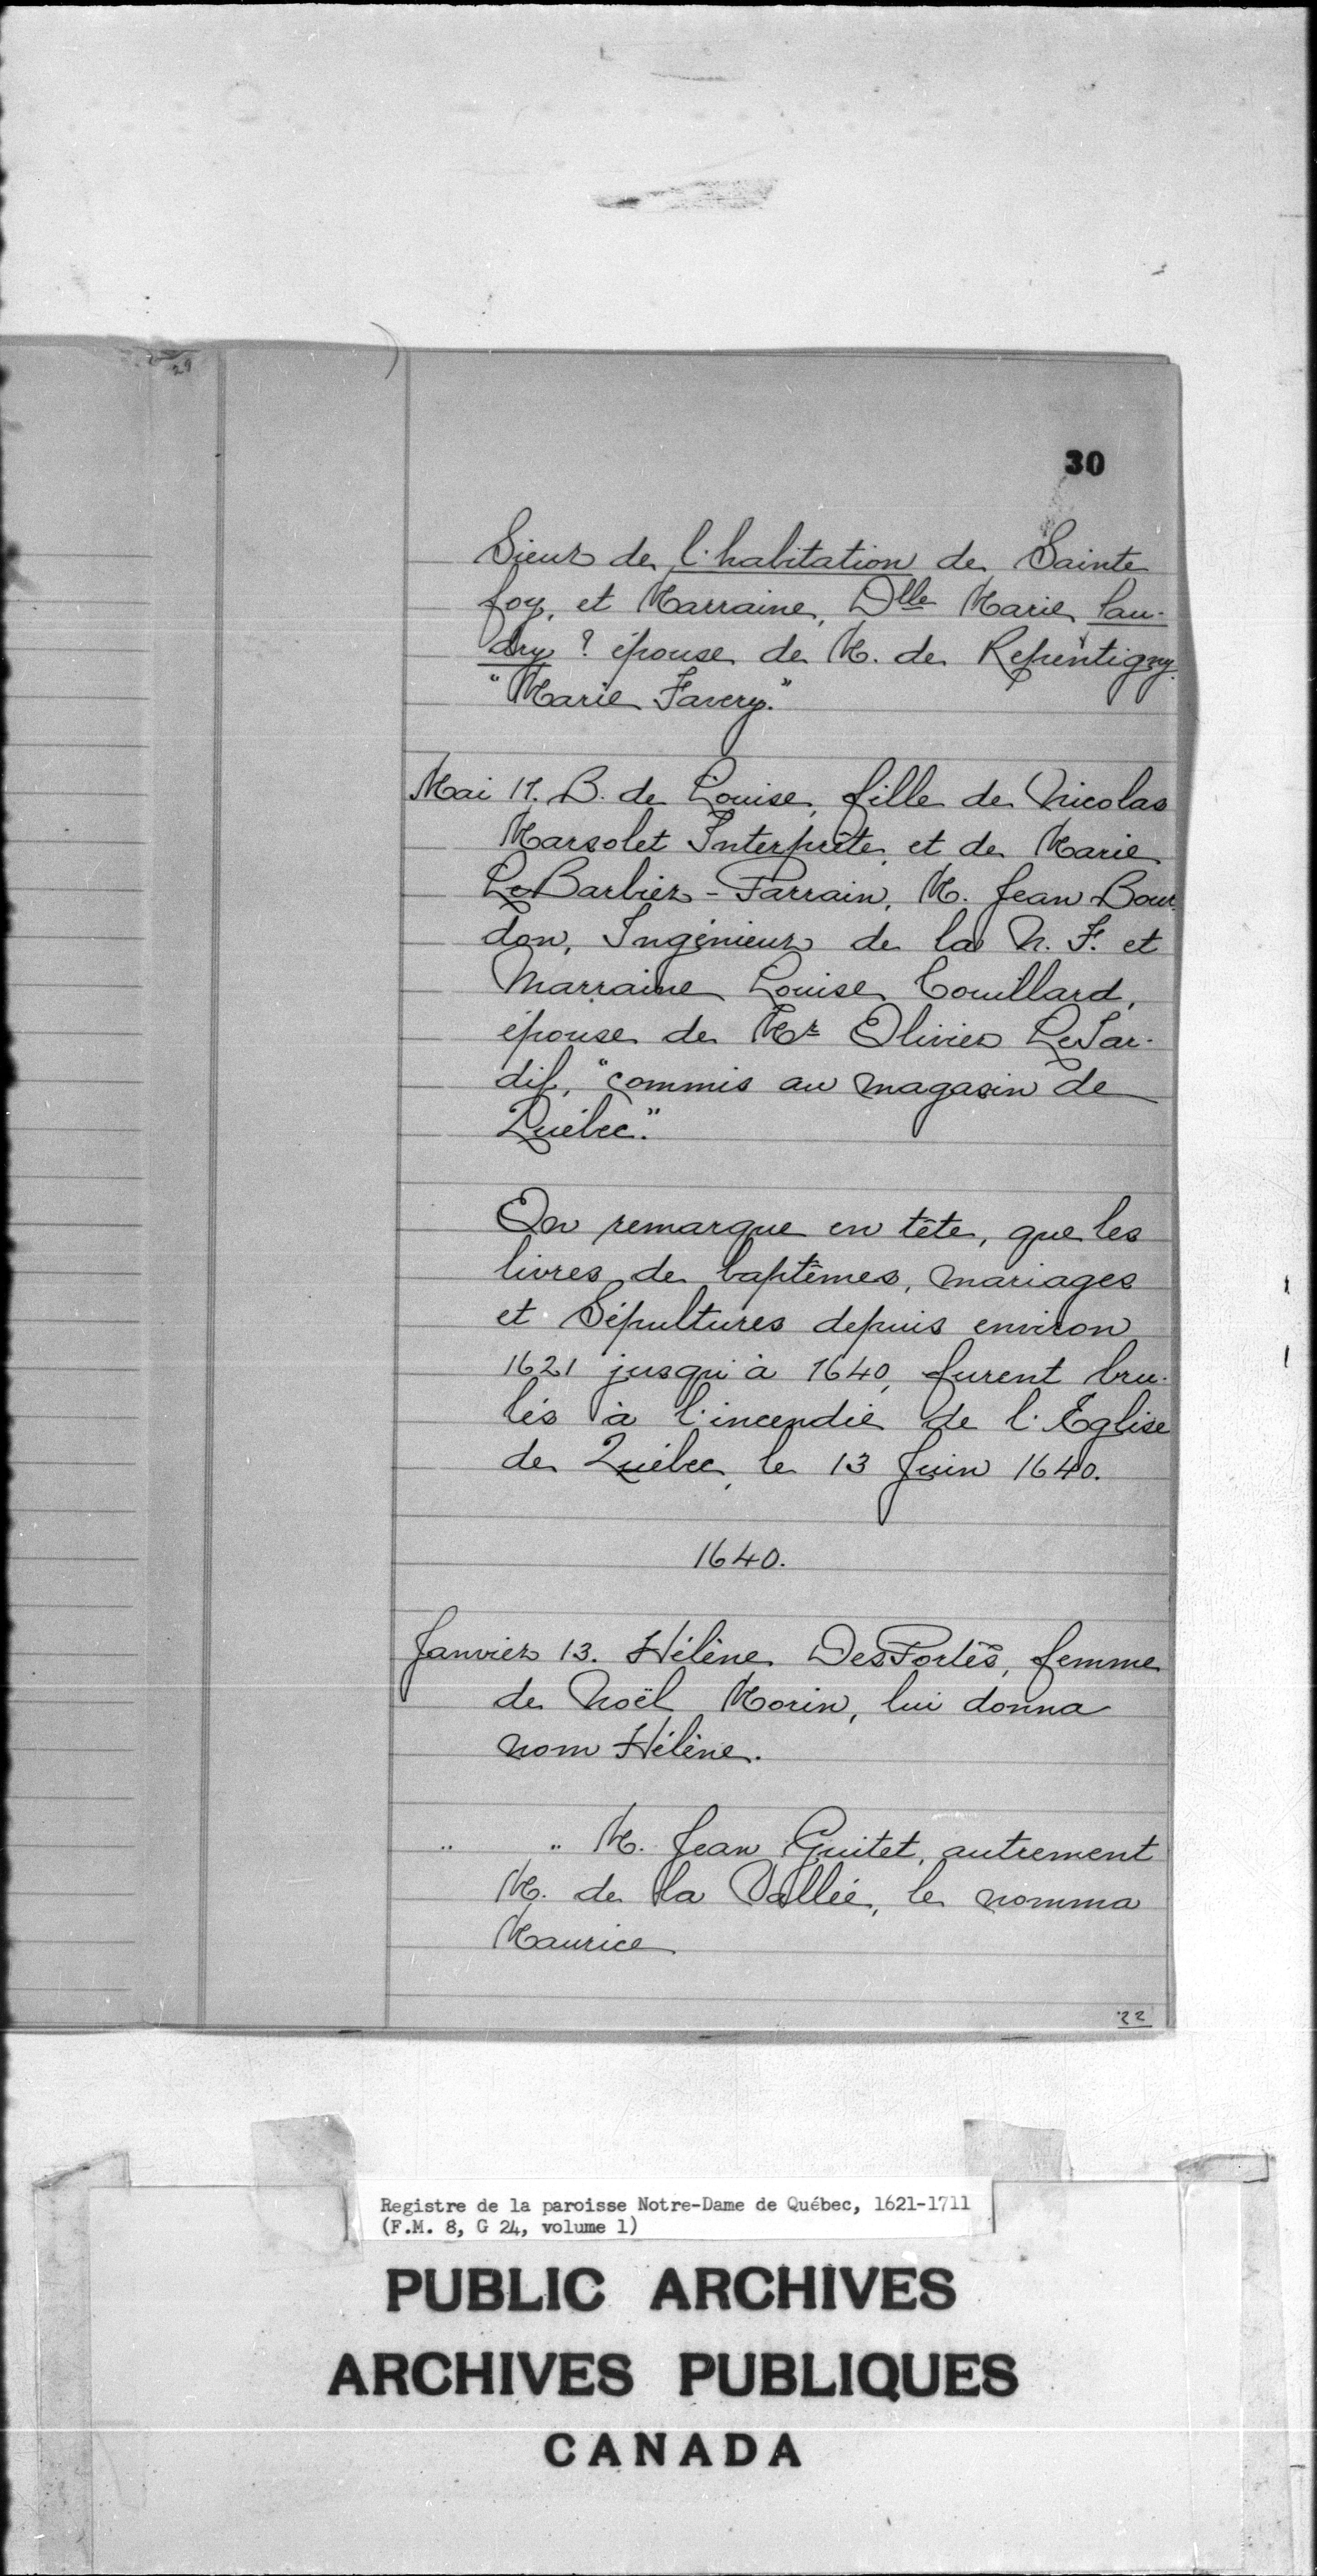 29
30
Sieur de l'habitation de Sainte
foy, et Marraine, Dlle Marie Lau-
dry ? épouse de M. de Repentigny.
"Marie Favery."
Mai 17. B. de Louise, fille de Nicolas
Marsolet Interprête, et de Marie
LeBarbier - Parrain, M. Jean Bour-
don, Ingénieur de la N. F. et
Marraine Louise Couillard,
épouse de Mr Olivier LeTar-
dif, "commis au magasin de
Québec."
On remarque en tête, que les
livres de baptêmes, mariages
et Sépultures depuis environ
1621 jusqu'à 1640, furent bru-
lés à l'incendie de l'Eglise
de Québec, le 13 Juin 1640.
1640.
Janvier 13. Hélène DesPortes, femme
de Noël Morin, lui donna
nom Hélène.
" " M. Jean Guitet, autrement
M. de la Vallée, le nomma
Maurice
22
Registre de la paroisse Notre-Dame de Québec, 1621-1711
(F.M. 8, G 24, volume 1)
PUBLIC ARCHIVES
ARCHIVES PUBLIQUES
CANADA